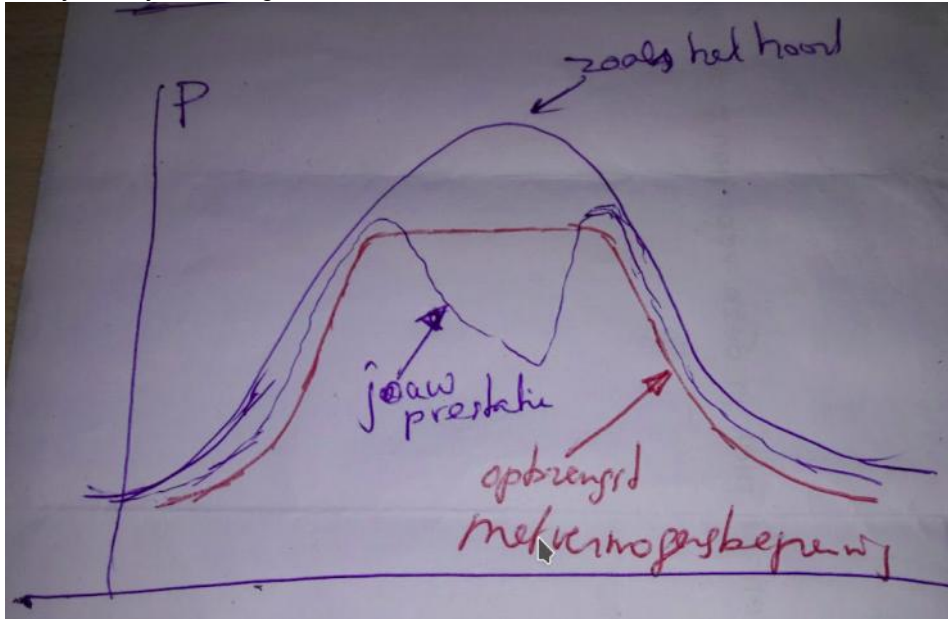 zoals het hoort
P
jouw
prestatie
opbrengst
met vermogensbegrenzing